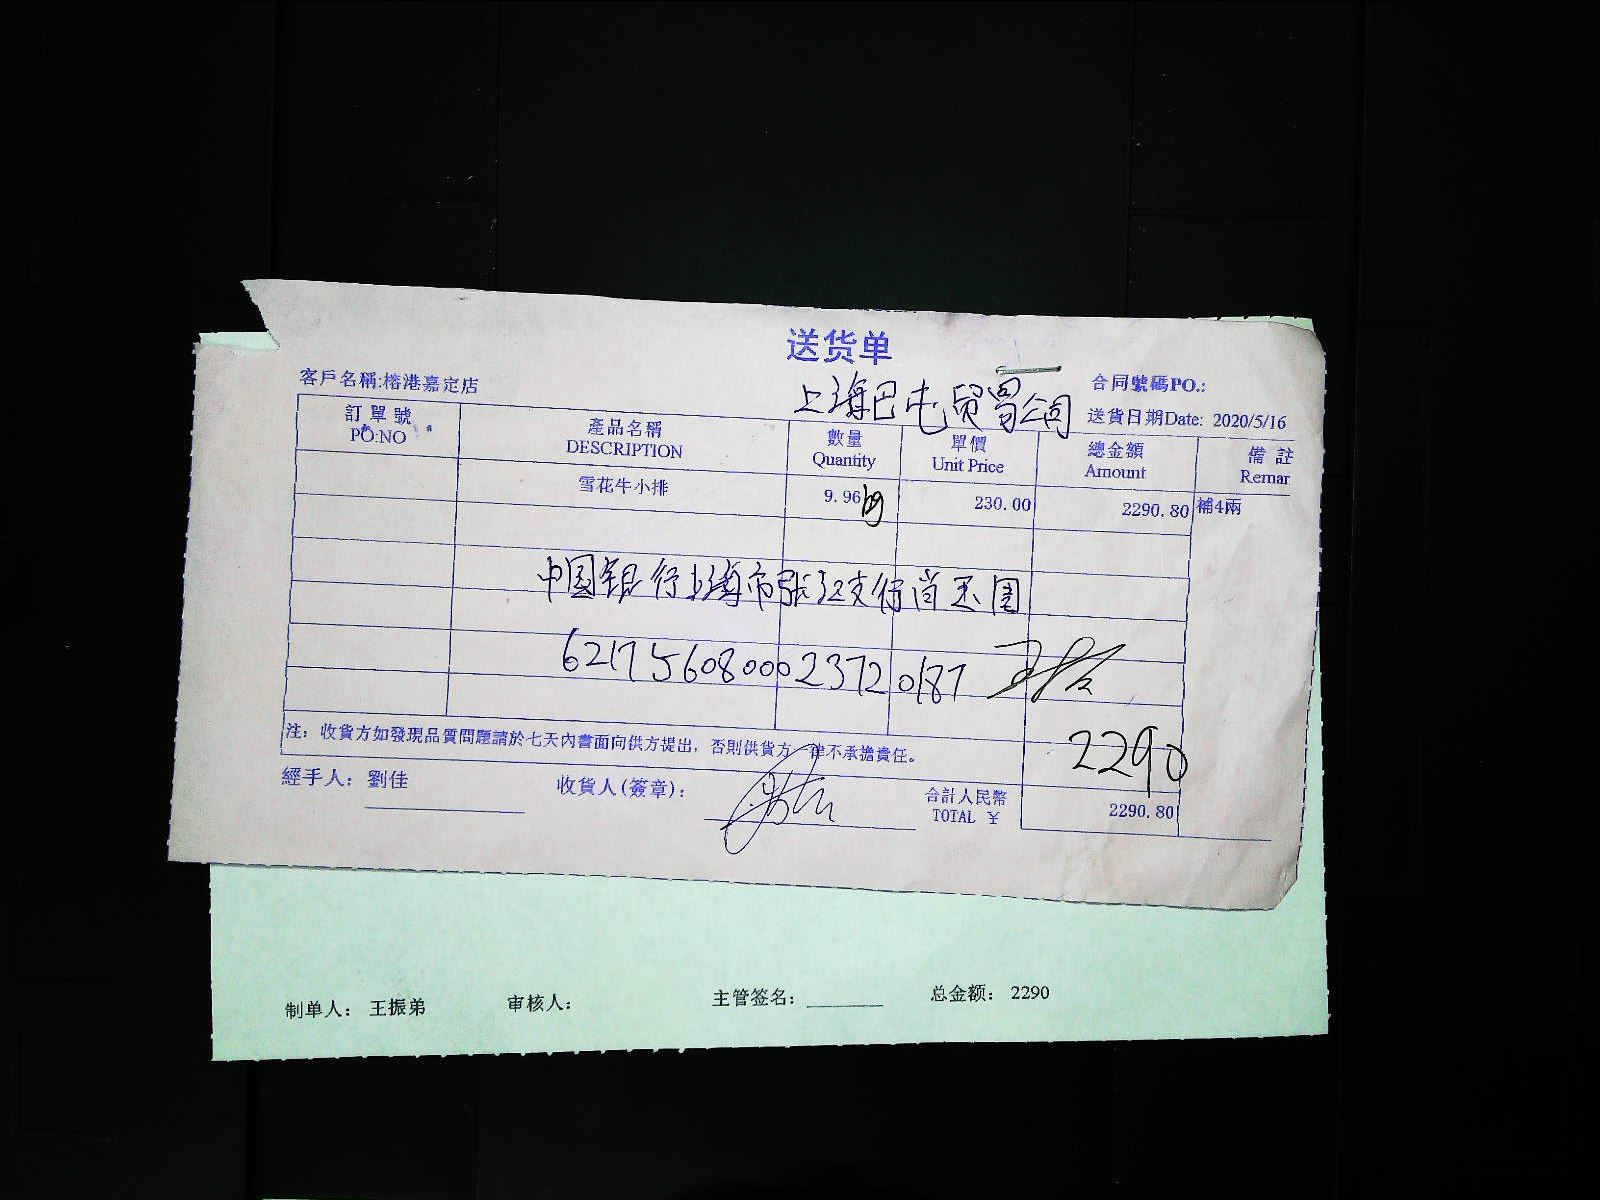 送货单
客戶名稱:榕港嘉定店
上海巴屯贸易公司
合同號碼PO.:
送貨日期Date: 2020/5/16
訂單號 產品名稱 數量 單價 總金額 備註
PO:NO DESCRIPTION Quantity Unit Price Amount Remar
雪花牛小排 9.96kg 230.00 2290.80 補4兩
中国银行上海市张江支行尚玉圆
6217560800023720187
2290
注：收貨方如發現品質問題請於七天內書面向供方提出，否則供貨方一律不承擔責任。
經手人：劉佳 收貨人(簽章)： 合計人民幣
TOTAL ¥ 2290.80
制单人： 王振弟 审核人： 主管签名： 总金额： 2290